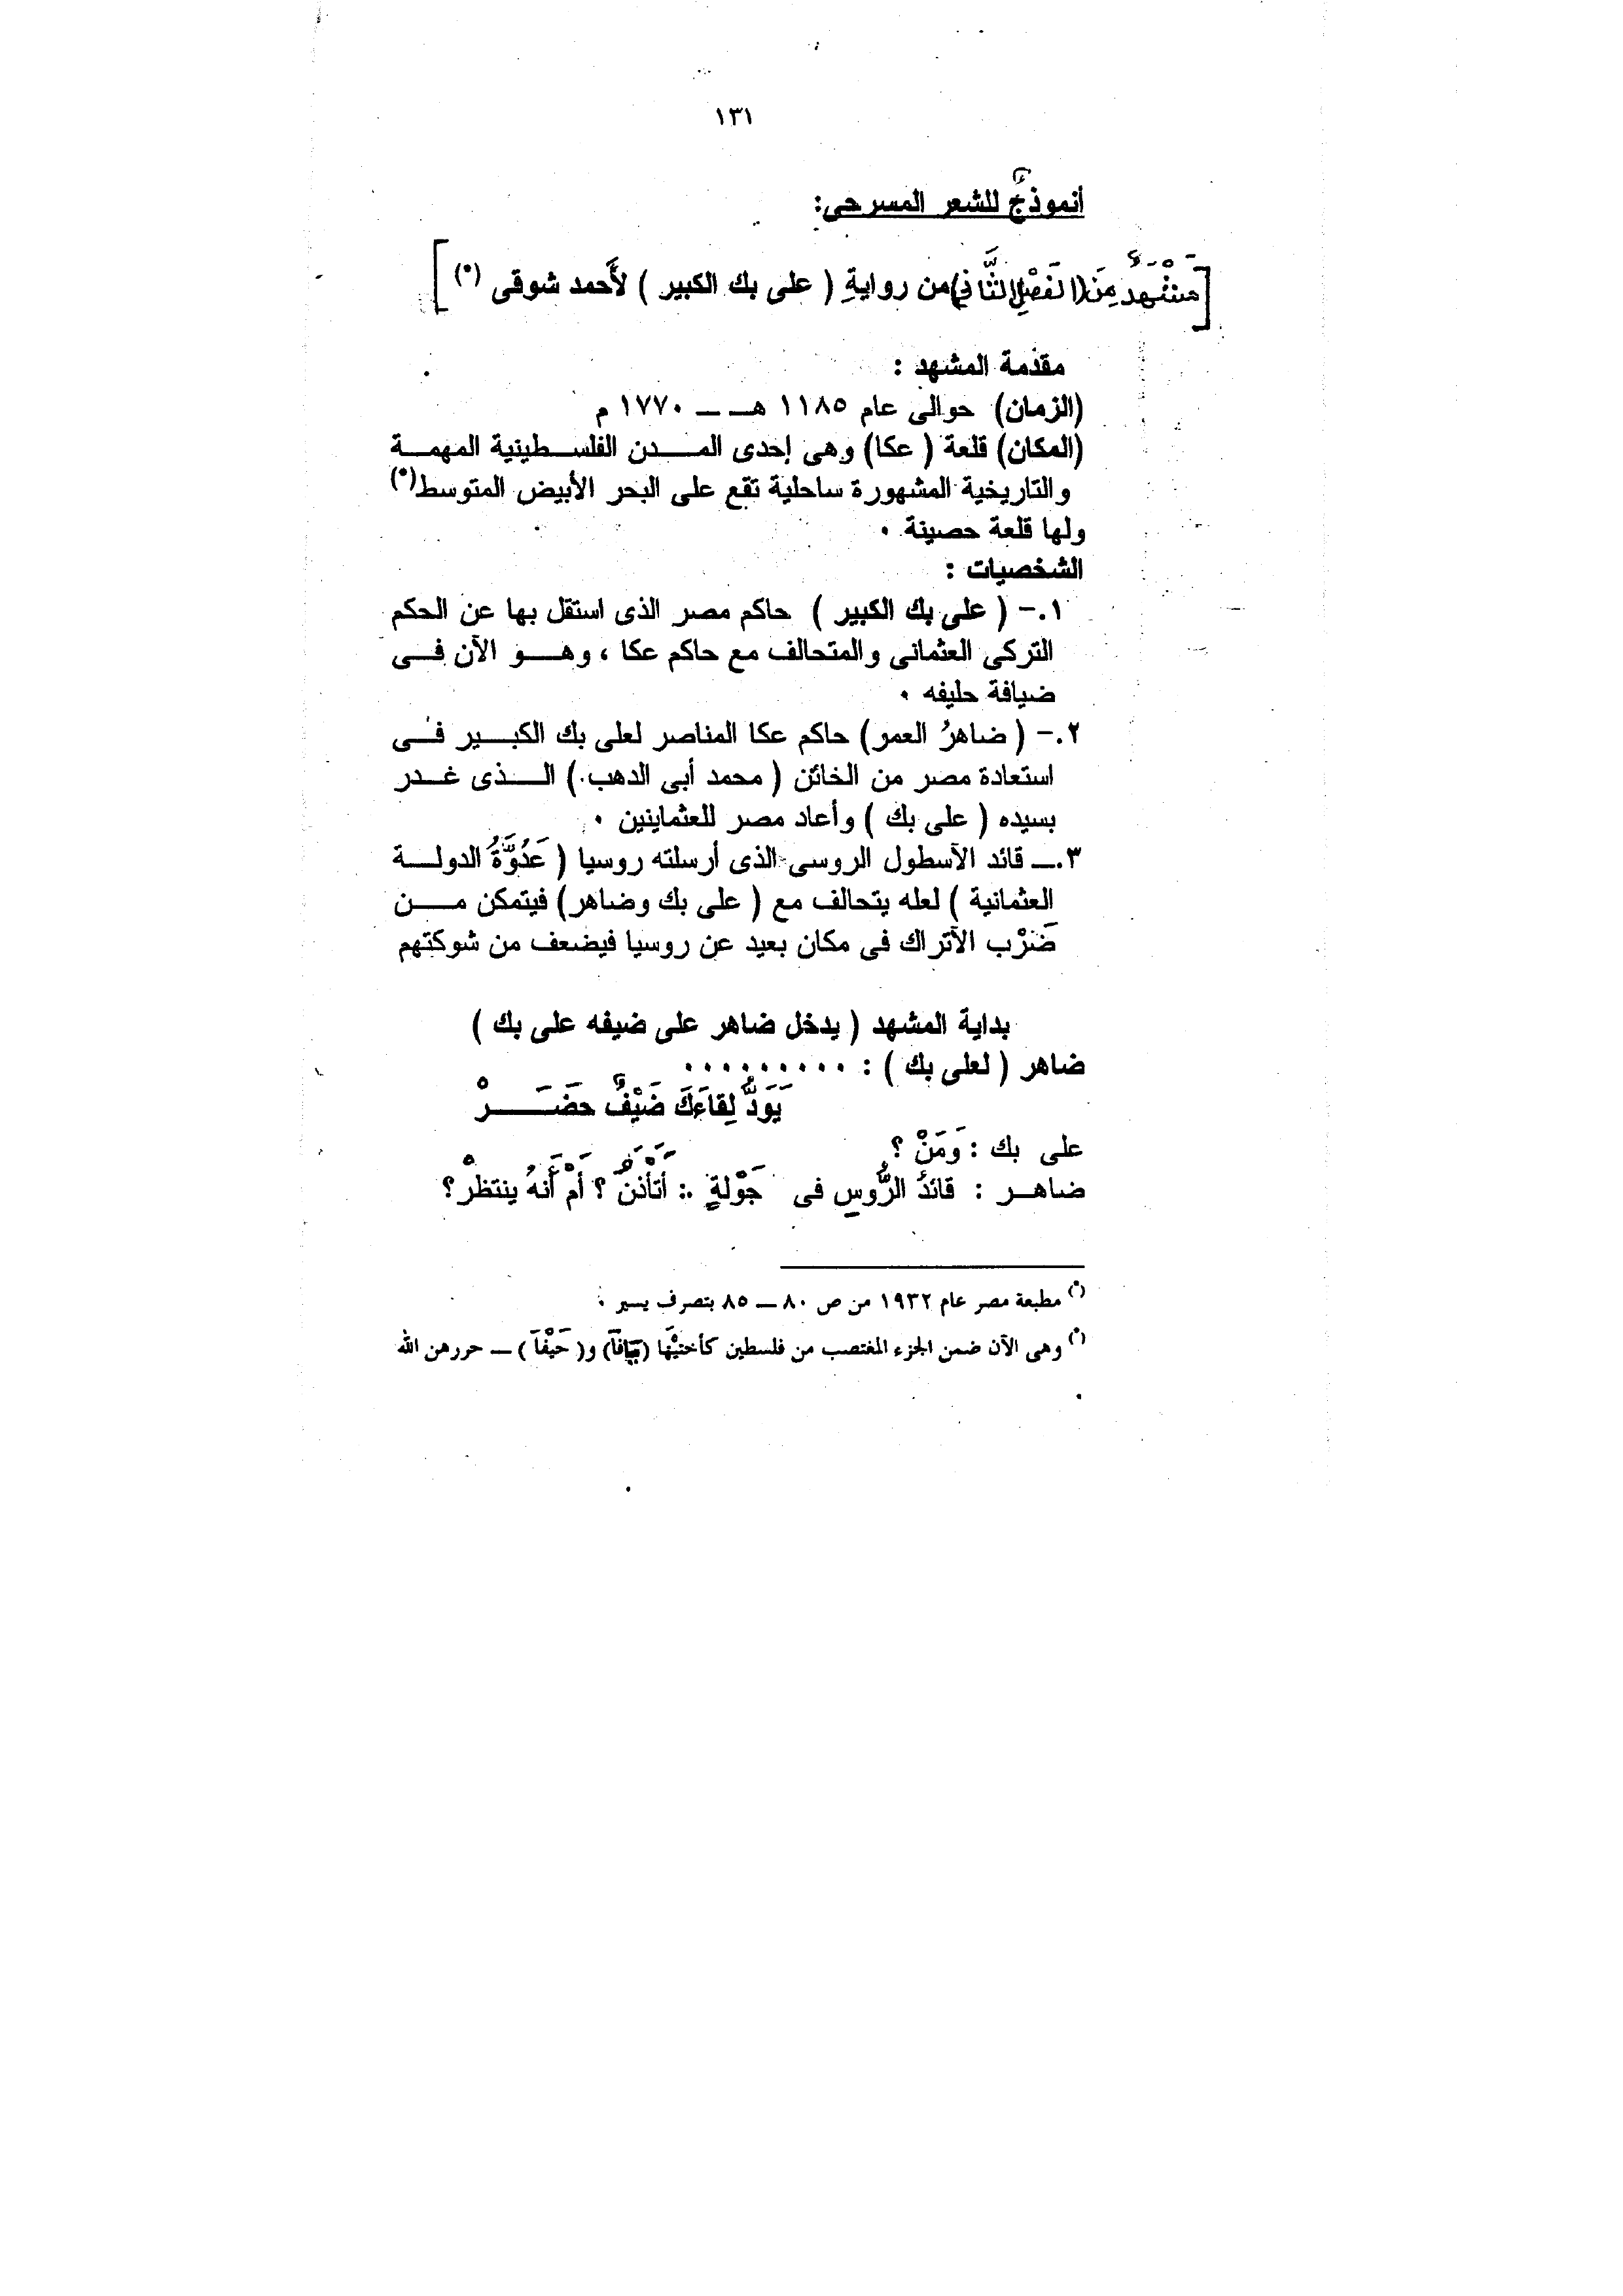 ١٣١
أنموذجٌ للشعر المسرحى:
[مَشْهَدٌ مِنَ (الفَصْلِ الثَّانِي) من روايةِ ( على بك الكبير ) لأَحمد شوقى (*)]
مقدمة المشهد :
(الزمان) حوالى عام ١١٨٥ هـ ــ ١٧٧٠ م
(المكان) قلعة ( عكا) وهى إحدى المدن الفلسطينية المهمة
والتاريخية المشهورة ساحلية تقع على البحر الأبيض المتوسط(*)
ولها قلعة حصينة ٠
الشخصيات :
١.– ( على بك الكبير ) حاكم مصر الذى استقل بها عن الحكم
التركى العثمانى والمتحالف مع حاكم عكا ، وهو الآن فى
ضيافة حليفه ٠
٢.– ( ضاهرُ العمر) حاكم عكا المناصر لعلى بك الكبير فى
استعادة مصر من الخائن ( محمد أبى الدهب ) الذى غدر
بسيده ( على بك ) وأعاد مصر للعثماينين ٠
٣.ــ قائد الأسطول الروسى الذى أرسلته روسيا ( عَدُوَّةُ الدولة
العثمانية ) لعله يتحالف مع ( على بك وضاهر) فيتمكن من
ضَرْب الأتراك فى مكان بعيد عن روسيا فيضعف من شوكتهم
بداية المشهد ( يدخل ضاهر على ضيفه على بك )
ضاهر ( لعلى بك ) : ٠٠٠٠٠٠٠٠٠
يَوَدُّ لِقاءَكَ ضَيْفٌ حضَرْ
على بك : وَمَنْ ؟
ضاهر : قائدُ الرُّوسِ فى جَوْلةٍ .: أتأذنُ ؟ أمْ أنهُ ينتظرْ ؟
(*) مطبعة مصر عام ١٩٣٢ من ص ٨٠ ــ ٨٥ بتصرف يسير ٠
(*) وهى الآن ضمن الجزء المغتصب من فلسطين كأختيْها (يافا) و( حَيْفَا ) ــ حررهن الله
٠